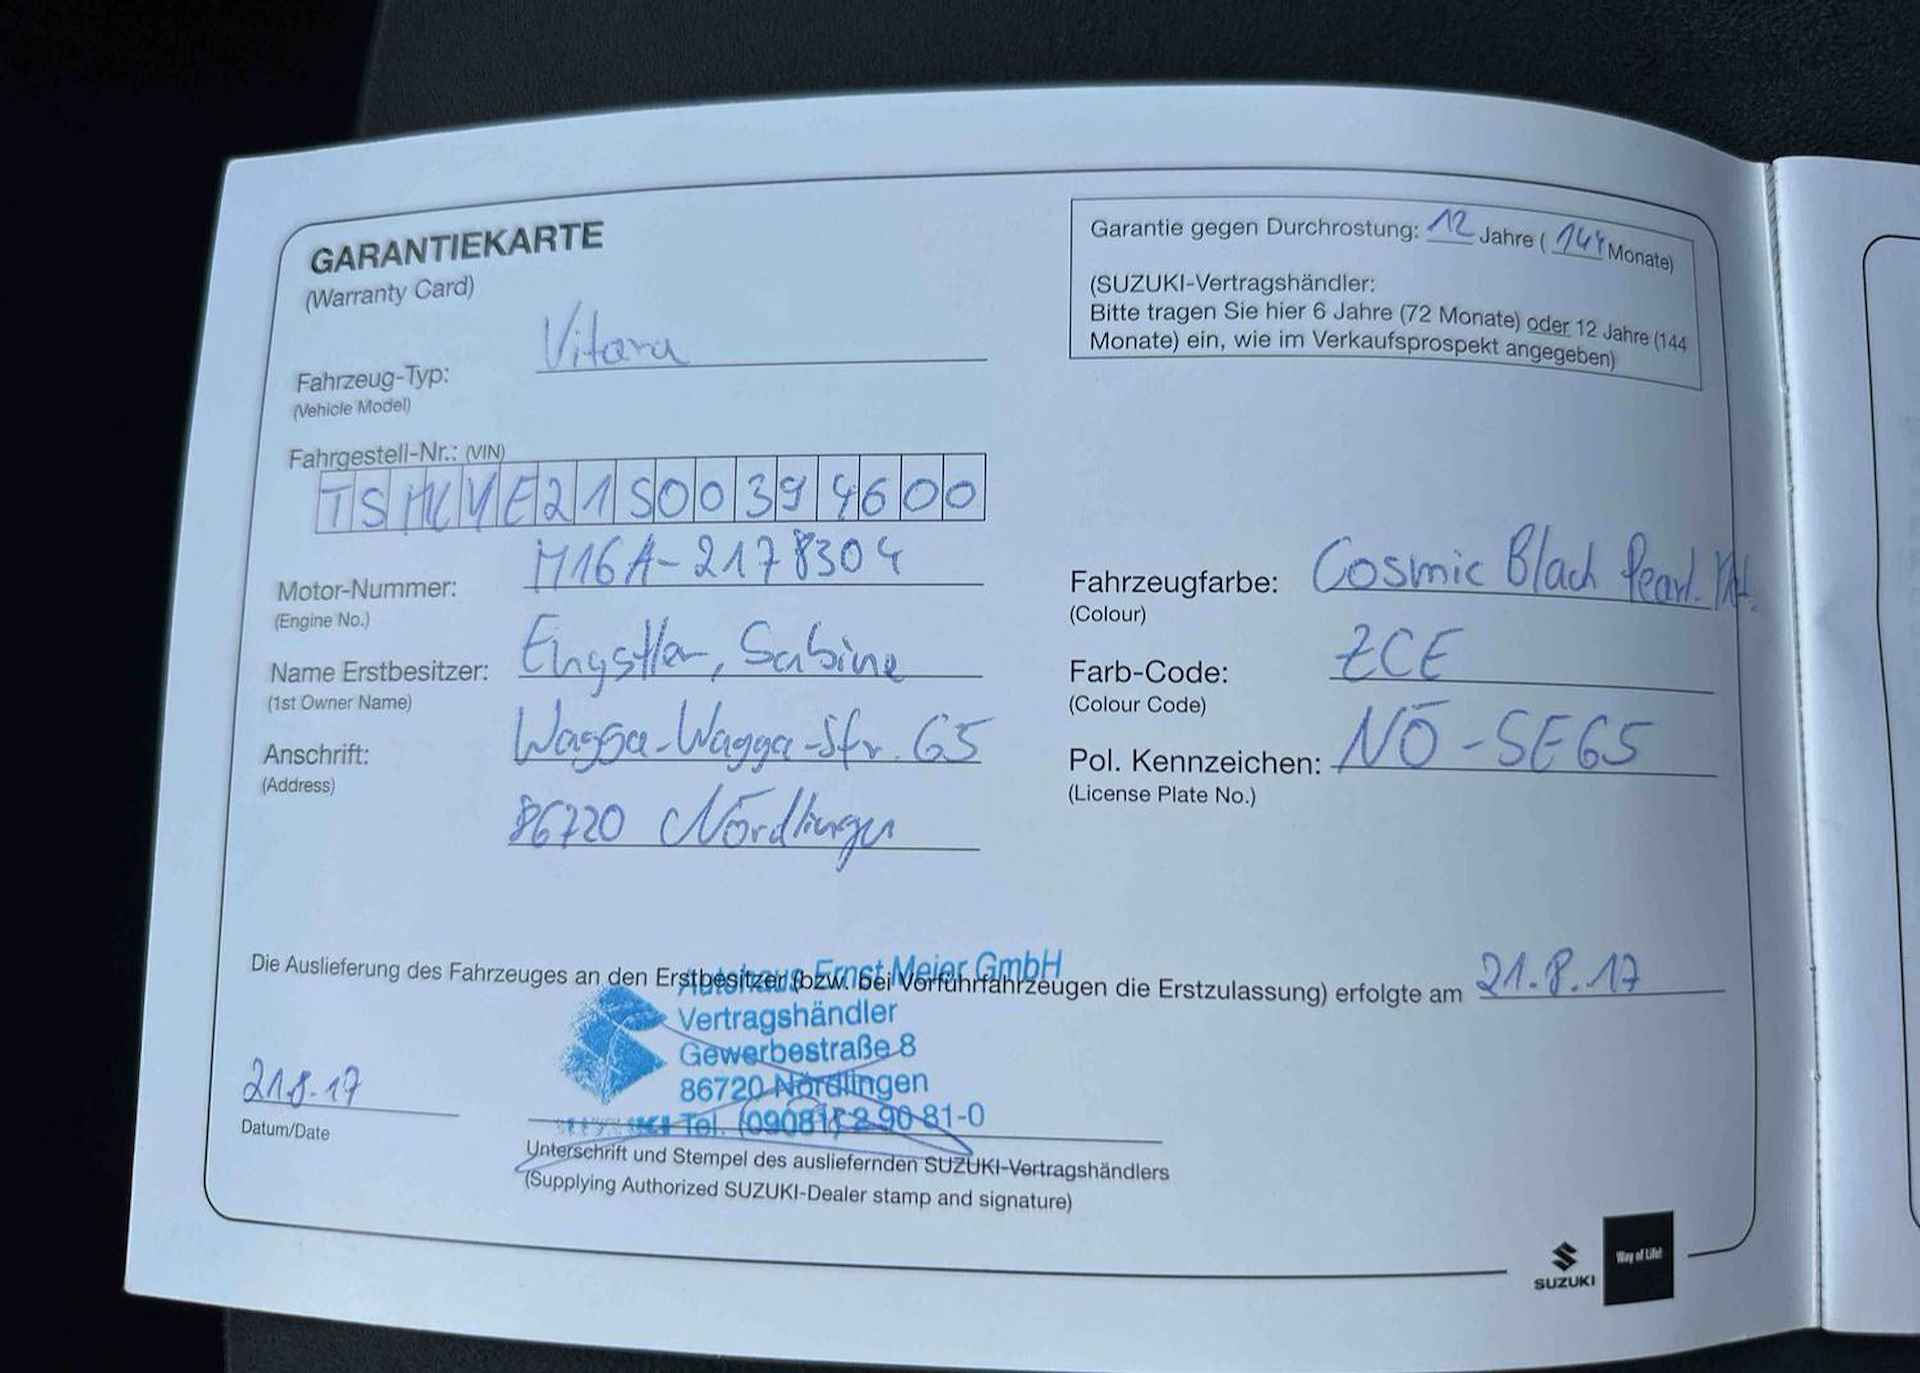 GARANTIEKARTE
(Warranty Card)
Garantie gegen Durchrostung: 12 Jahre (144 Monate)
(SUZUKI-Vertragshändler:
Bitte tragen Sie hier 6 Jahre (72 Monate) oder 12 Jahre (144
Monate) ein, wie im Verkaufsprospekt angegeben)
Fahrzeug-Typ: Vitara
(Vehicle Model)
Fahrgestell-Nr.: (VIN)
TSMLYE21S00394600
Motor-Nummer: M16A-2178304
(Engine No.)
Name Erstbesitzer: Engstler, Sabine
(1st Owner Name)
Anschrift: Wagga-Wagga-Str. 65
(Address)
86720 Nördlingen
Fahrzeugfarbe: Cosmic Black Pearl. Met.
(Colour)
Farb-Code: ZCE
(Colour Code)
Pol. Kennzeichen: NÖ-SE65
(License Plate No.)
Die Auslieferung des Fahrzeuges an den Erstbesitzer (bzw. bei Vorführfahrzeugen die Erstzulassung) erfolgte am 21.8.17
Autohaus Ernst Meier GmbH
Vertragshändler
Gewerbestraße 8
86720 Nördlingen
Tel. (09081) 2 90 81-0
21.8.17
Datum/Date
Unterschrift und Stempel des ausliefernden SUZUKI-Vertragshändlers
(Supplying Authorized SUZUKI-Dealer stamp and signature)
SUZUKI
Way of Life!